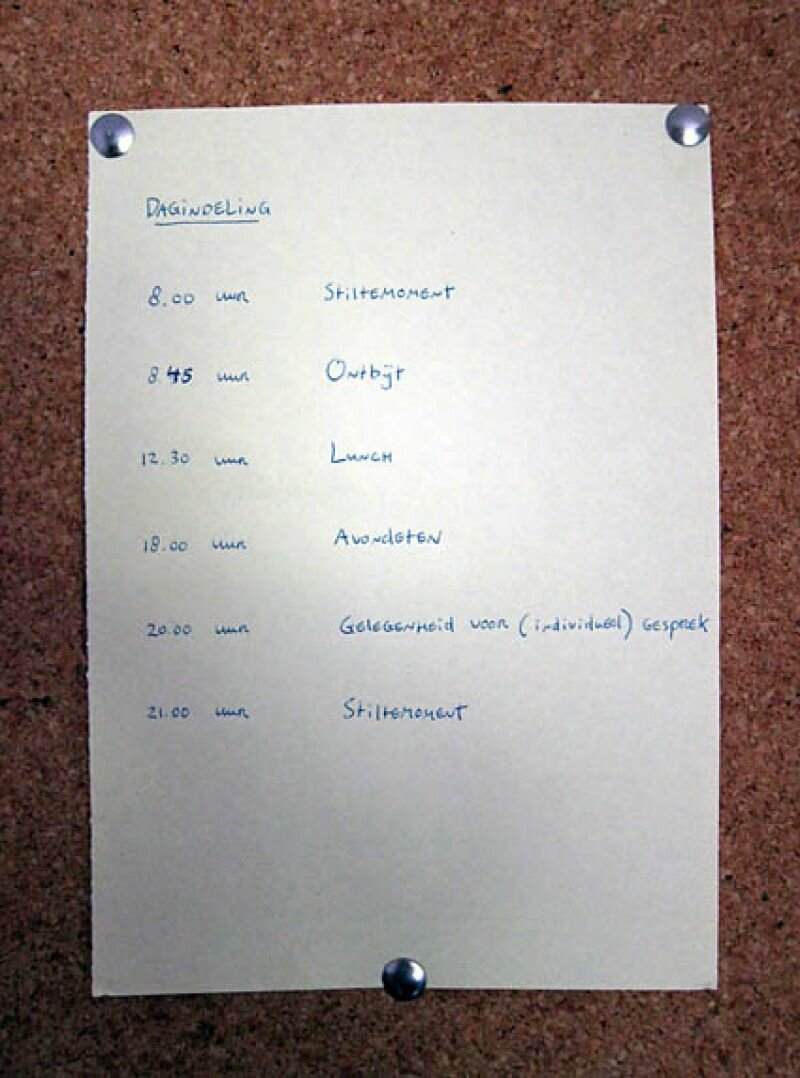 DAGINDELING
8.00 uur Stiltemoment
8.45 uur Ontbijt
12.30 uur Lunch
18.00 uur Avondeten
20.00 uur Gelegenheid voor (individueel) gesprek
21.00 uur Stiltemoment